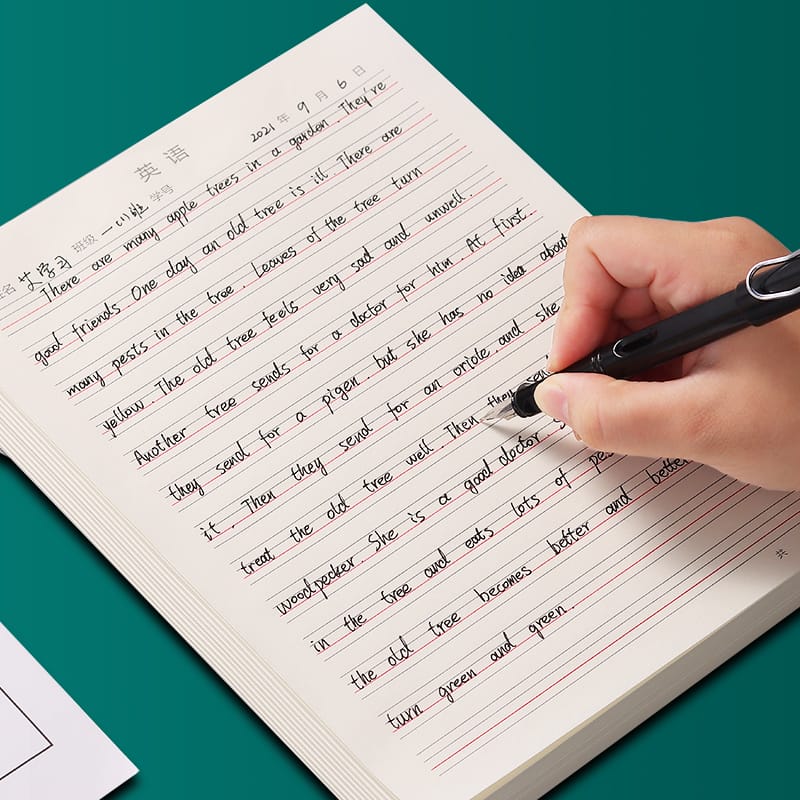 英语
2021年9月6日
姓名 艾学习 班级 一(1)班 学号
There are many apple trees in a garden. They're
good friends. One day an old tree is ill. There are
many pests in the tree. Leaves of the tree turn
yellow. The old tree feels very sad and unwell.
Another tree sends for a doctor for him. At first
they send for a pigen. but she has no idea about
it. Then they send for an oriole. and she
treat the old tree well. Then they
woodpecker. She is a good doctor
in the tree and eats lots of
the old tree becomes better and better
turn green and green.
共